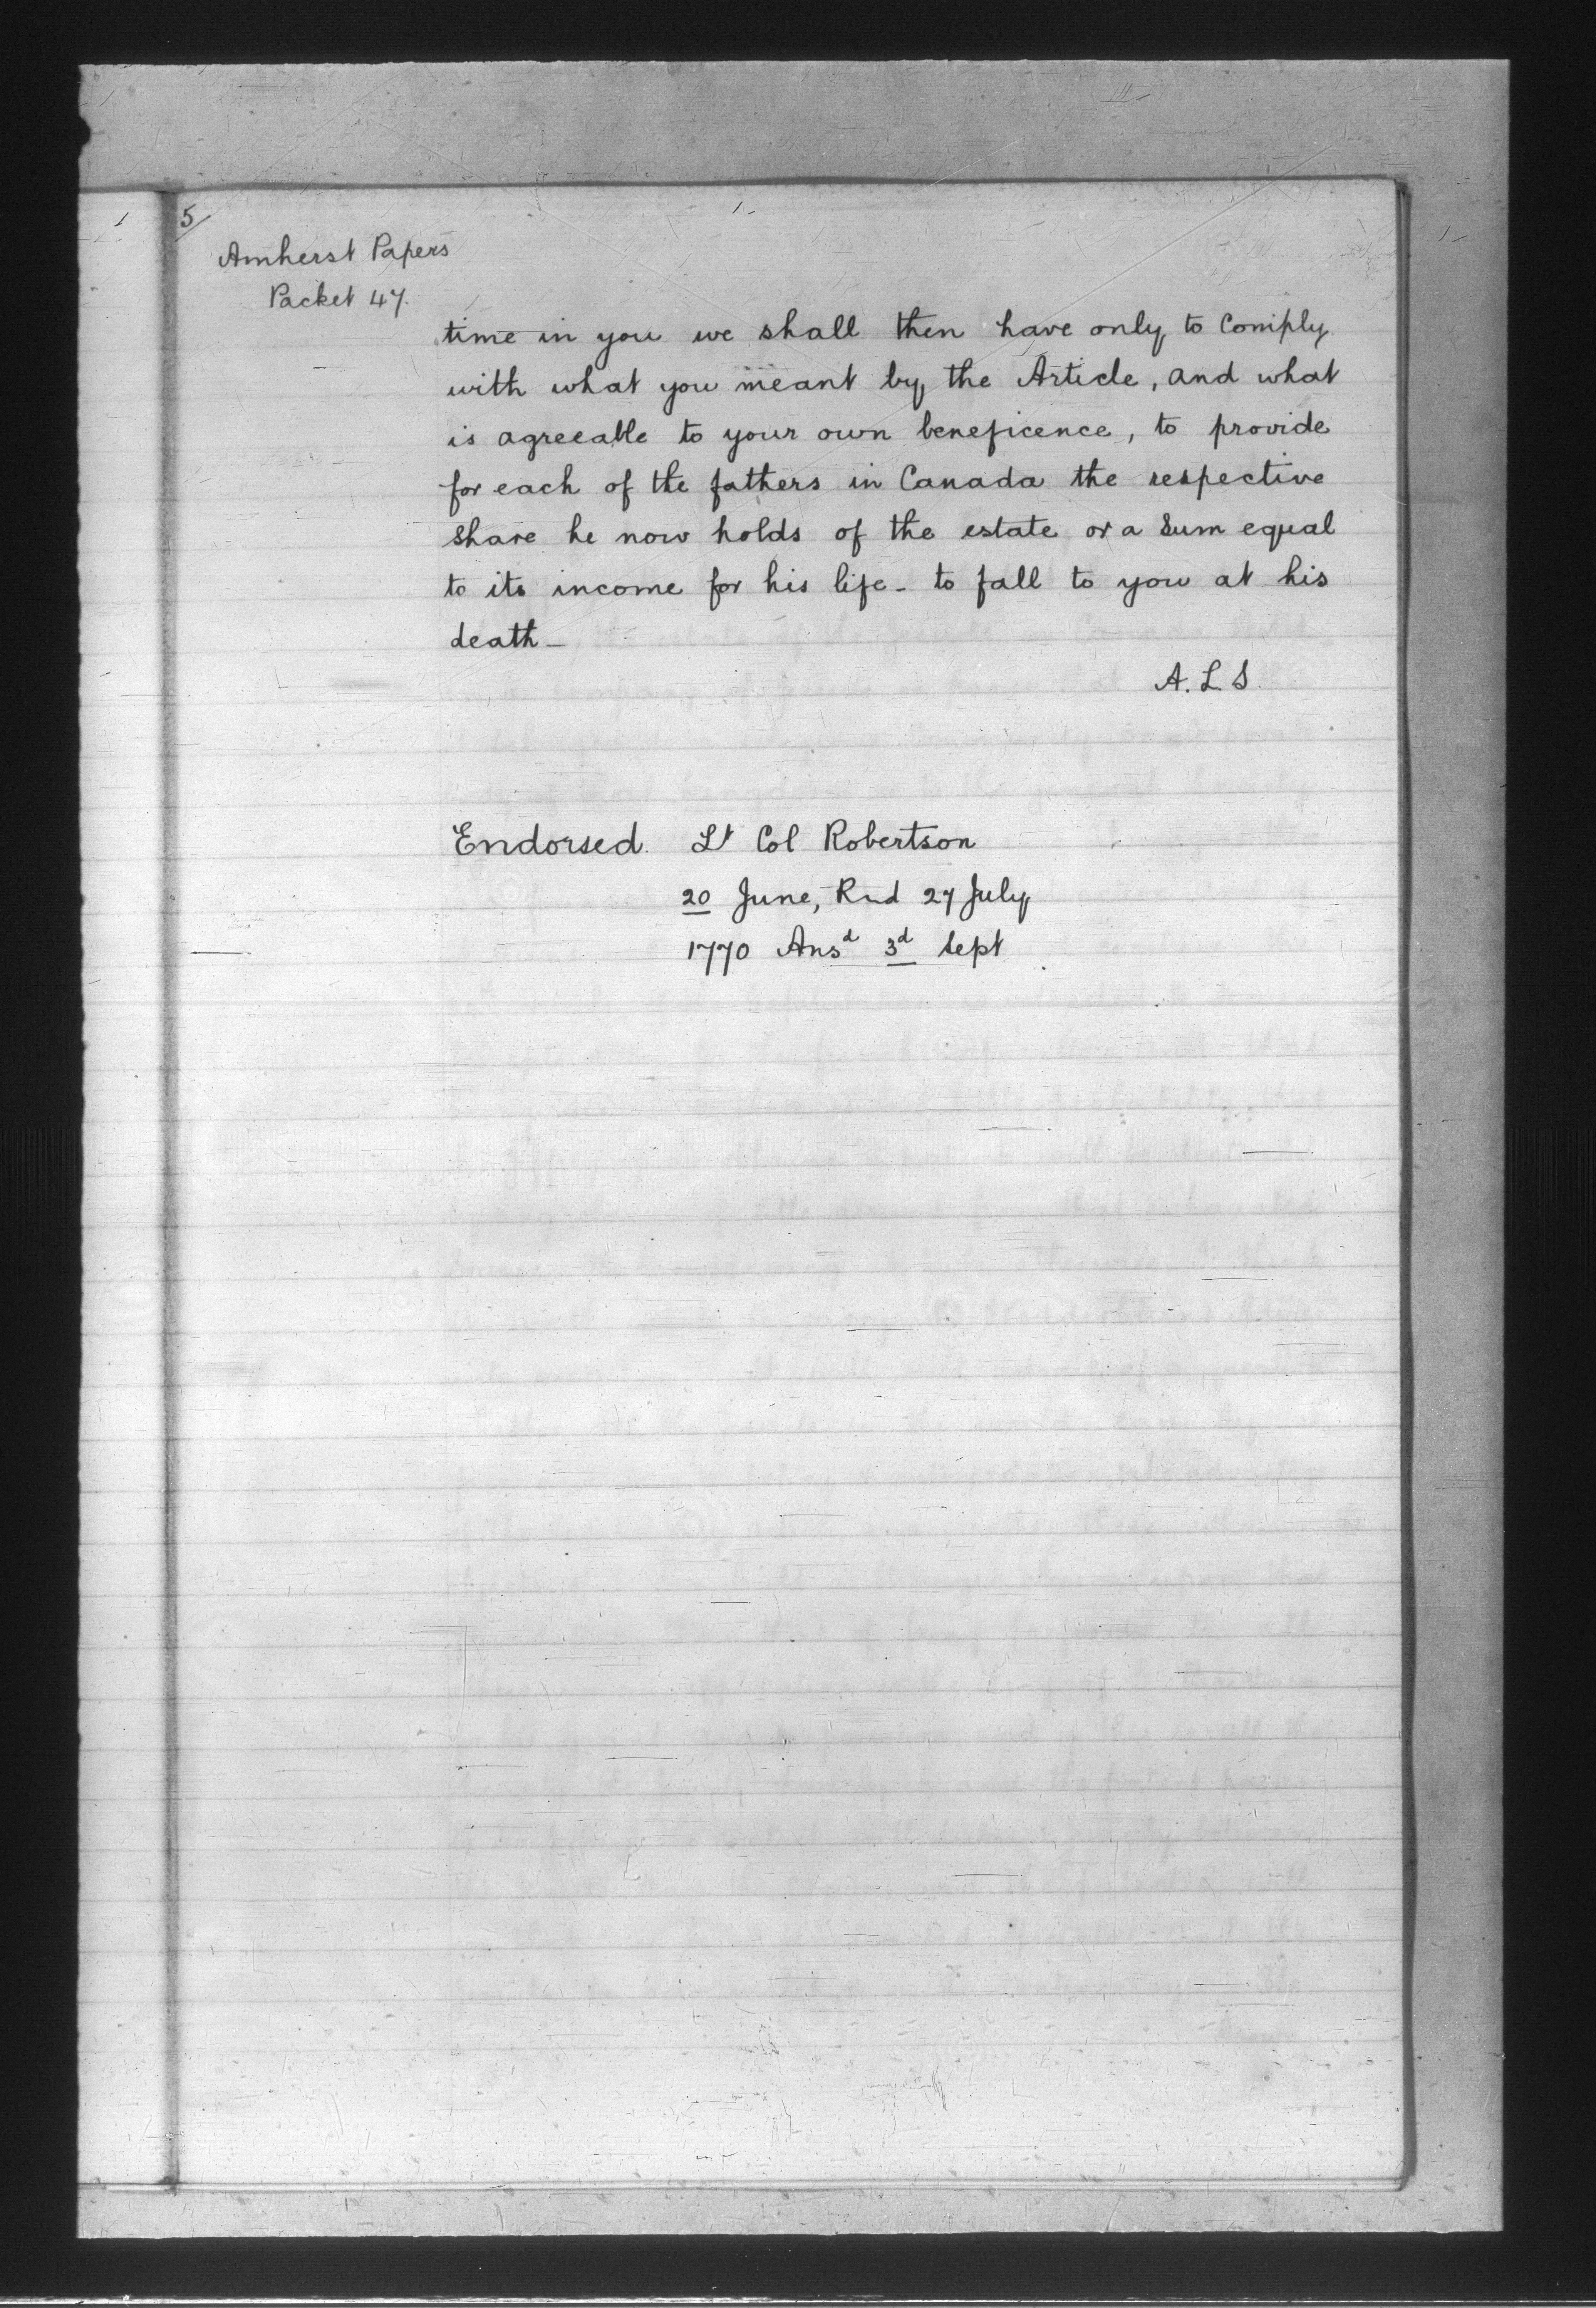 5/
Amherst Papers
Packet 47.
time in you we shall then have only to Comply
with what you meant by the Article, and what
is agreeable to your own beneficence, to provide
for each of the fathers in Canada the respective
Share he now holds of the estate or a Sum equal
to its income for his life - to fall to you at his
death -
A. L. S.
Endorsed. Lt Col Robertson
20 June, Rud 27 July
1770 Ansd 3d Sept